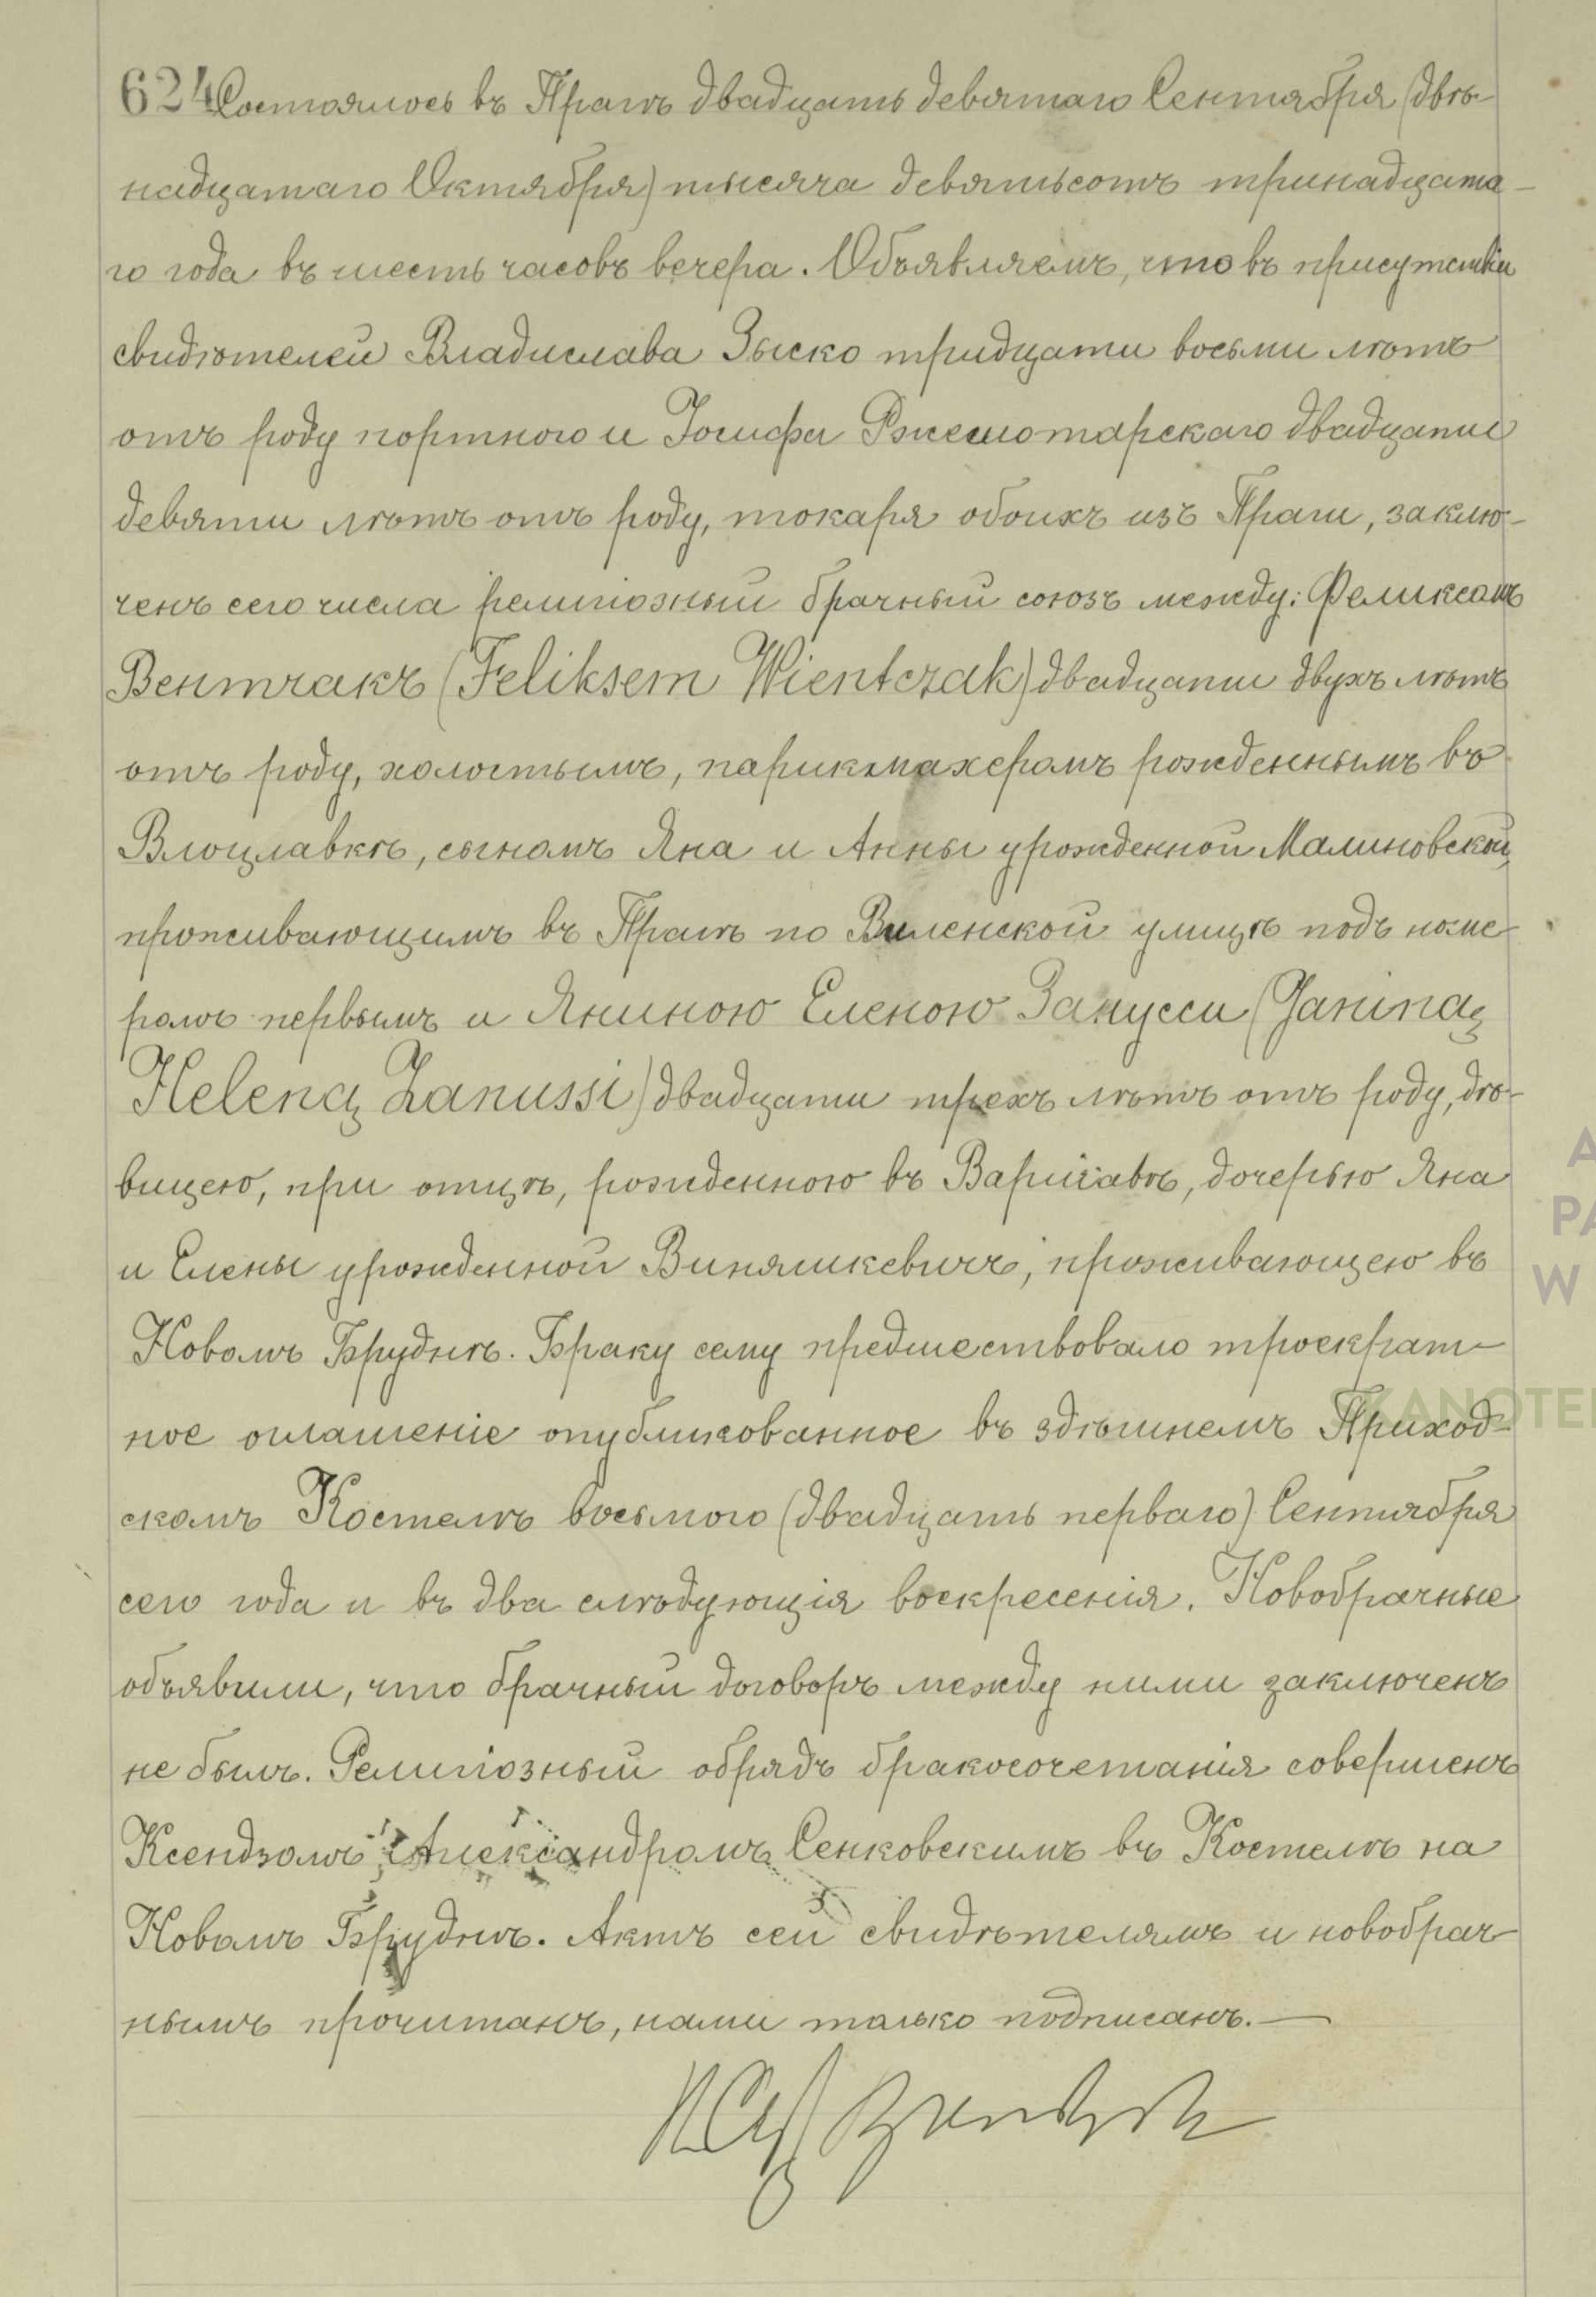 624 Состоялось въ Прагѣ двадцать девятаго Сентября (двѣ-
надцатаго Октября) тысяча девятьсотъ тринадцата-
го года въ шесть часовъ вечера. Объявляемъ, что въ присутствіи
свидѣтелей Владислава Зыско тридцати восьми лѣтъ
отъ роду портного и Іосифа Ржешотарскаго двадцати
девяти лѣтъ отъ роду, токаря обоихъ изъ Праги, заклю-
ченъ сего числа религіозный брачный союзъ между: Феликсомъ
Вентчакъ (Feliksem Wientczak) двадцати двухъ лѣтъ
отъ роду, холостымъ, парикмахеромъ рожденнымъ въ
Влоцлавкѣ, сыномъ Яна и Анны урожденной Малиновской,
проживающимъ въ Прагѣ по Виленской улицѣ подъ номе-
ромъ первымъ и Яниною Еленою Занусси (Janiną
Heleną Zanussi) двадцати трехъ лѣтъ отъ роду, дѣ-
вицею, при отцѣ, рожденною въ Варшавѣ, дочерью Яна
и Елены урожденной Виняшкевичъ, проживающею въ
Новомъ Бруднѣ. Браку сему предшествовало троекрат-
ное оглашеніе опубликованное въ здѣшнемъ Приход-
скомъ Костелѣ восьмого (двадцать перваго) Сентября
сего года и въ два слѣдующія воскресенія. Новобрачные
объявили, что брачный договоръ между ними заключенъ
не былъ. Религіозный обрядъ бракосочетанія совершенъ
Ксендзомъ Александромъ Сенковскимъ въ Костелѣ на
Новомъ Бруднѣ. Актъ сей свидѣтелямъ и новобрач-
нымъ прочитанъ, нами только подписанъ.—